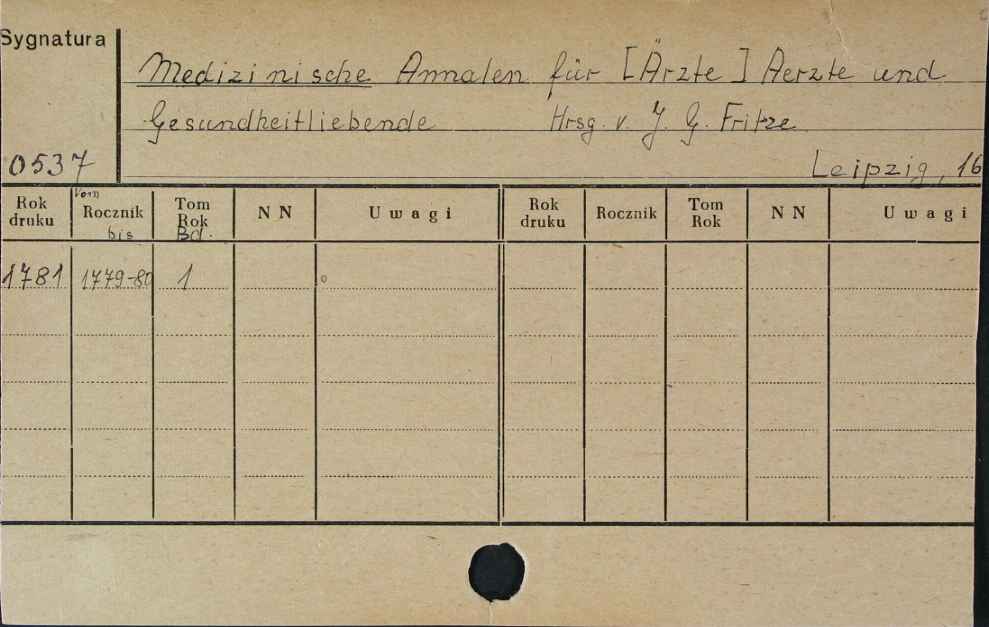 Sygnatura
Medizinische Annalen für [Ärzte] Aerzte und
Gesundheitliebende Hrsg. v. J. G. Fritze
0537 Leipzig, 16
Rok druku vom Rocznik bis Tom Rok Bd. NN Uwagi Rok druku Rocznik Tom Rok NN Uwagi
1781 1779-80 1